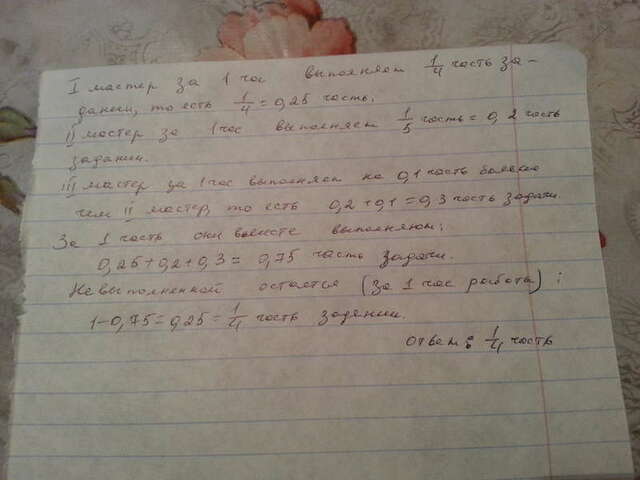 I мастер за 1 час выполняет 1/4 часть за-
дании, то есть 1/4 = 0,25 часть.
II мастер за 1 час выполняет 1/5 часть = 0,2 часть
задании.
III мастер за 1 час выполняет на 0,1 часть больше
чем II мастер, то есть 0,2+0,1=0,3 часть задачи.
За 1 часть они вместе выполняют:
0,25+0,2+0,3= 0,75 часть задачи.
Невыполненной остается (за 1 час работы) :
1-0,75=0,25=1/4 часть задании.
Ответ: 1/4 часть